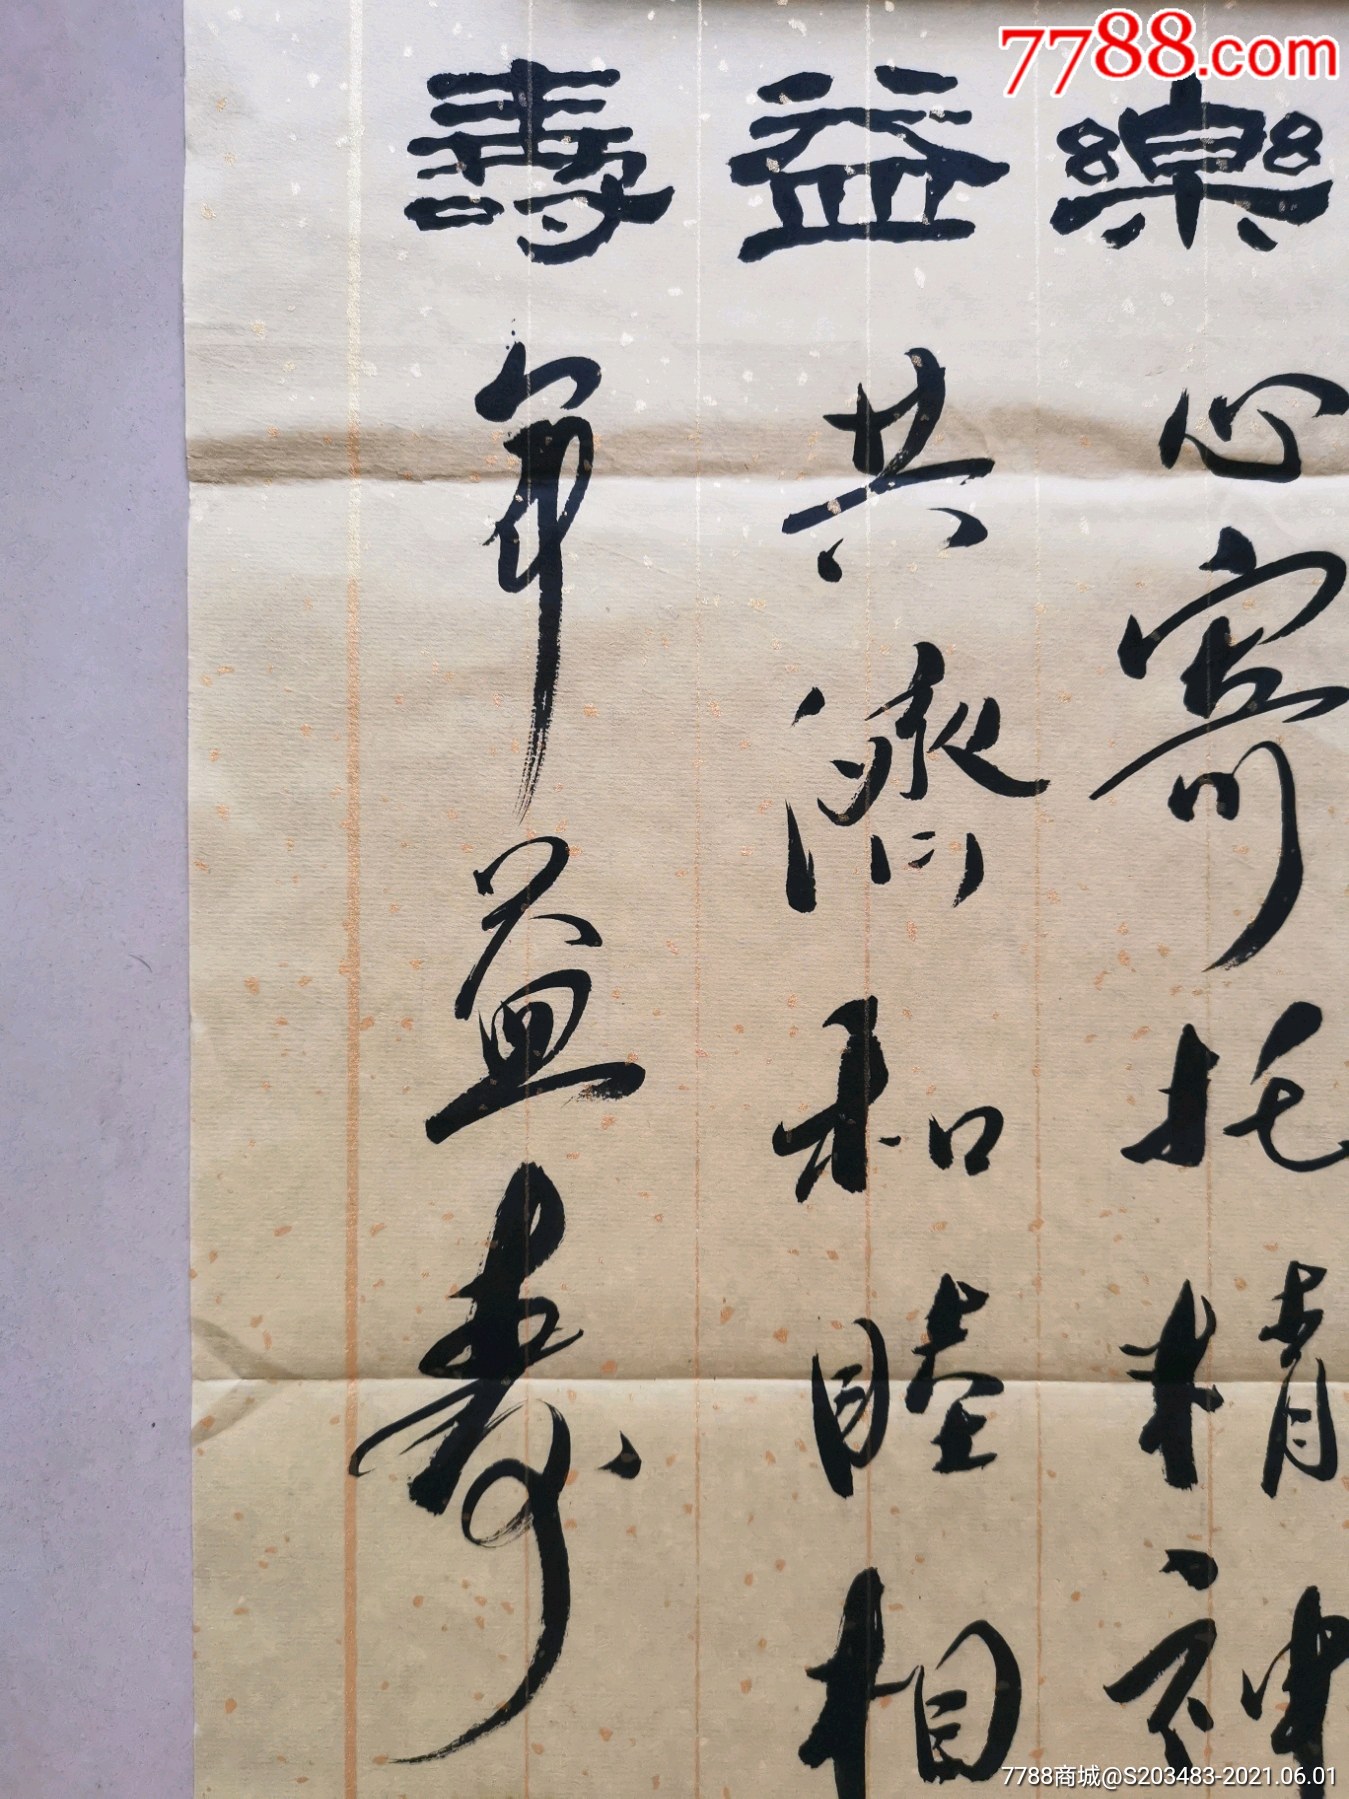 7788.com
樂 益 壽
心寄托精神
共濟和睦相
年益壽
7788商城@S203483-2021.06.01